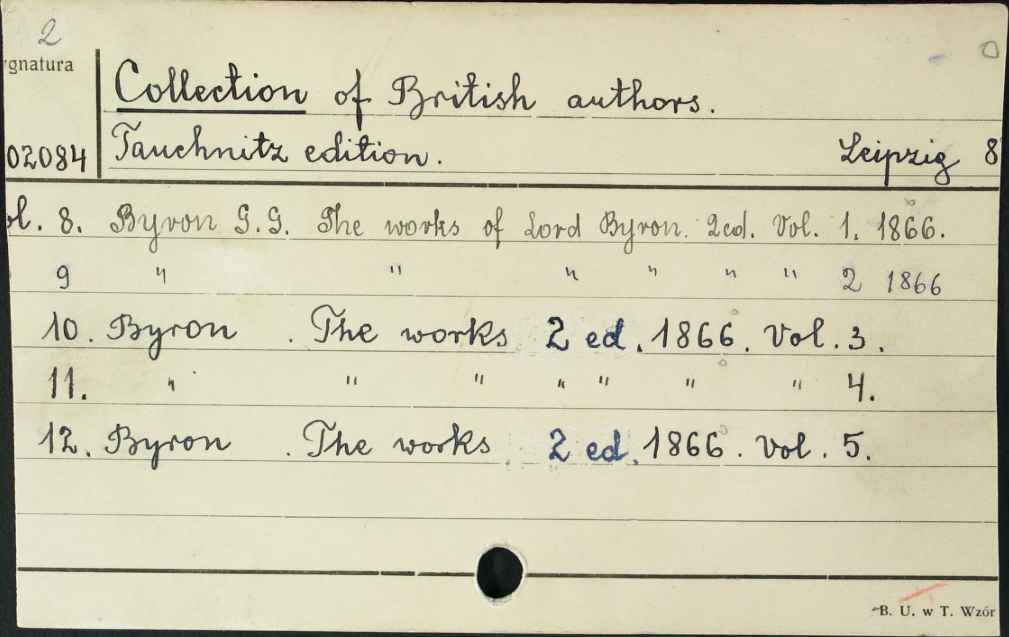 2
gnatura
Collection of British authors.
02084 Tauchnitz edition. Leipzig 8
ol. 8. Byron G.G. The works of Lord Byron. 2ed. Vol. 1. 1866.
9 " " " " " " 2 1866
10. Byron . The works 2 ed. 1866. Vol. 3.
11. " " " " " " " 4.
12. Byron . The works 2 ed. 1866. Vol. 5.
B. U. w T. Wzór